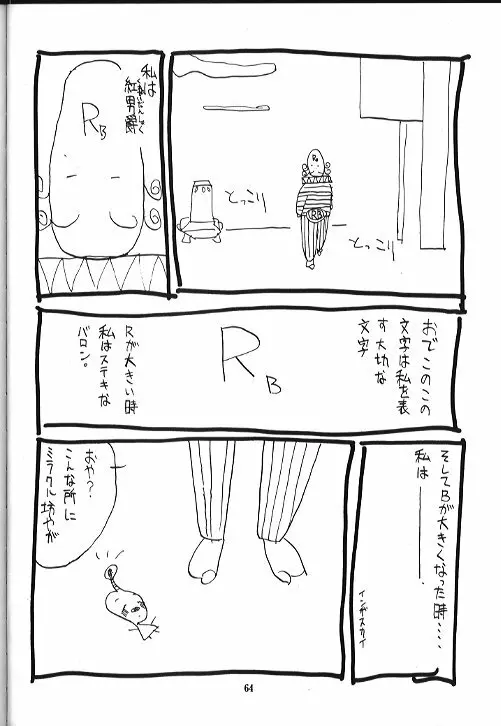 とっこり
とっこり
R
RB
私は
紅男爵
くれないだんしゃく
RB
おでこのこの
文字は私を表
す大切な
文字
RB
Rが大きい時
私はステキな
バロン。
そしてBが大きくなった時・・・・
私は――――.
おや？
こんな所に
ミラクル坊やが
64